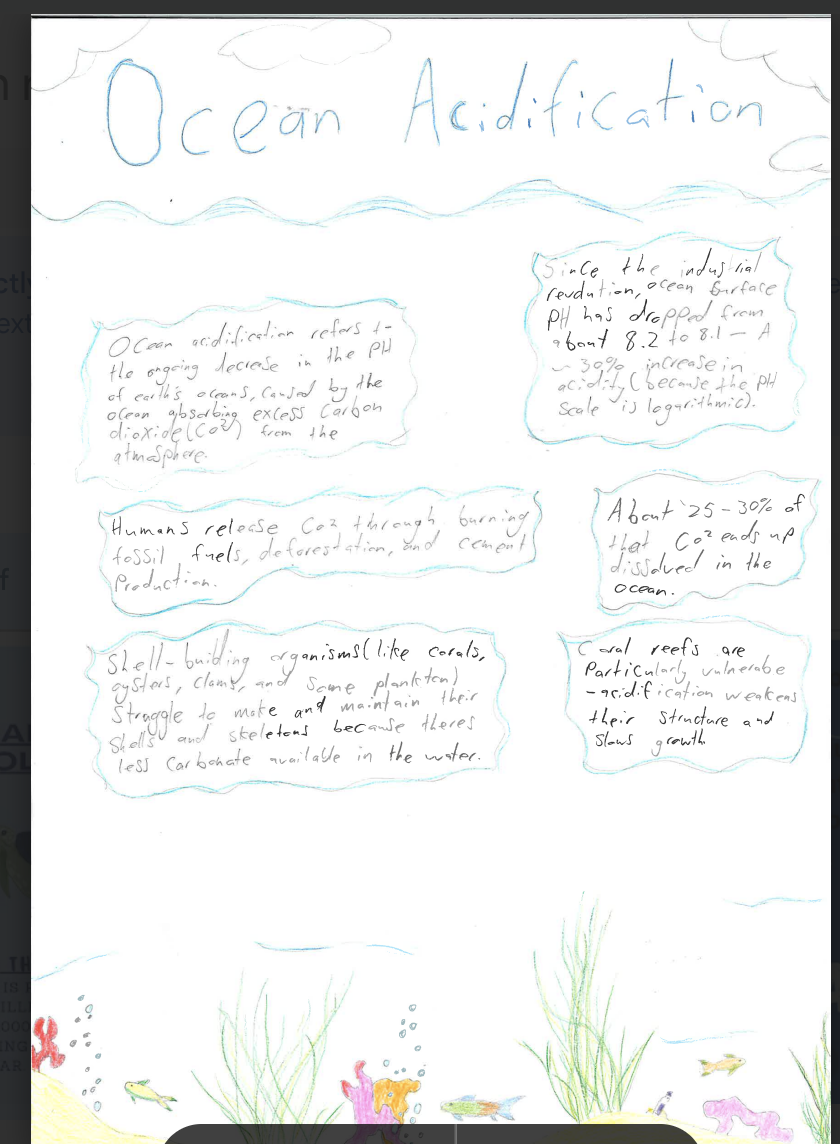 Ocean Acidification
Since the industrial
revolution, ocean surface
PH has dropped from
about 8.2 to 8.1 – A
~ 30% increase in
acidity (because the PH
Scale is logarithmic).
Ocean acidification refers t-
the ongoing decrease in the PH
of earth's oceans, caused by the
ocean absorbing excess Carbon
dioxide (Co²) from the
atmosphere.
Humans release Co² through burning
fossil fuels, deforestation, and cement
Production.
About 25-30% of
that Co² ends up
dissolved in the
ocean.
Shell-building organisms (like corals,
oysters, clams, and some plankton)
Struggle to make and maintain their
Shells and skeletons because theres
less Carbonate available in the water.
Coral reefs are
Particularly vulnerabe
-acidification weakens
their Structure and
Slows growth